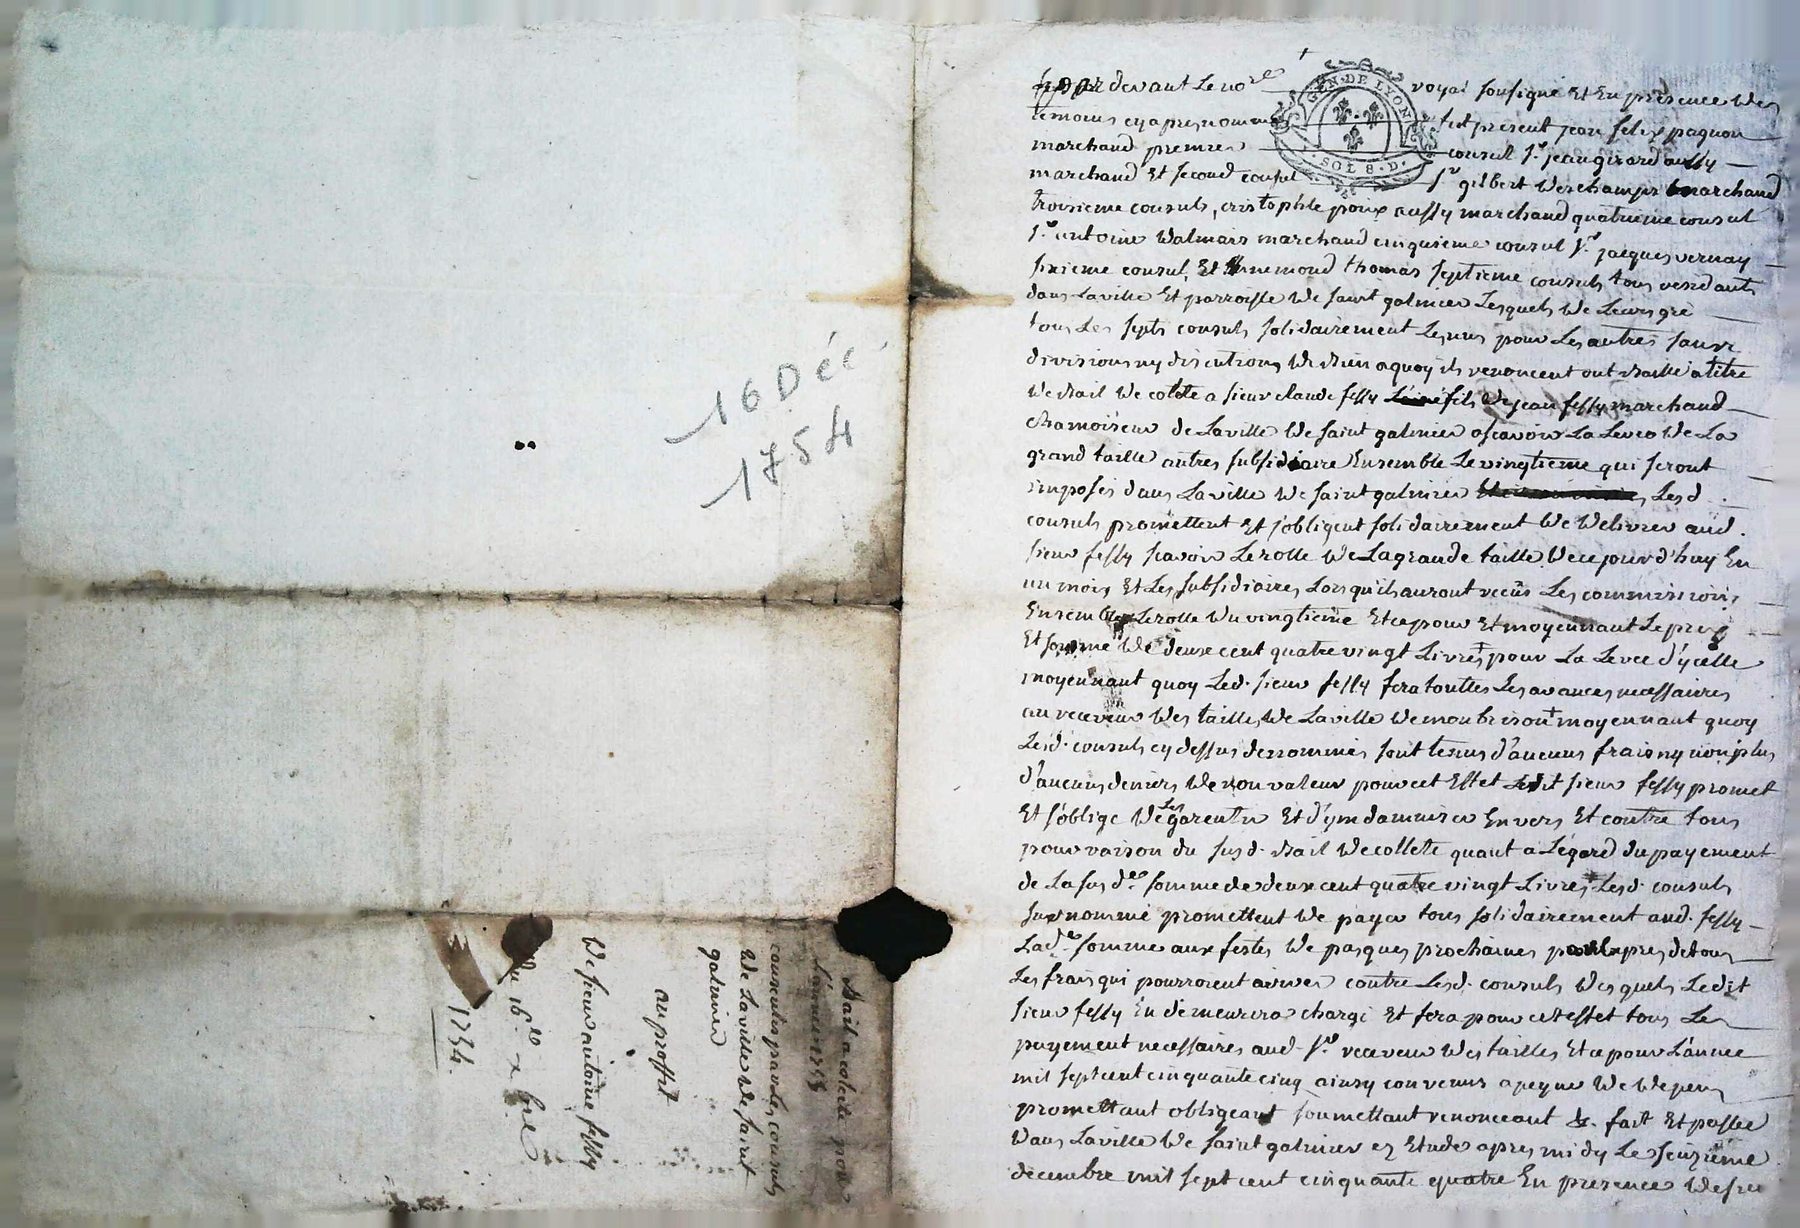 16 Déc
1754
Bail a colecte pour
l'année 1755
consentis par les consuls
de la ville de saint
galmier
au proffit
de sieur antoine fessy
du 16.e xbre
1754.
GEN. DE LYON
SOL 8. D.
par devant le no.re royal sousigné et en presence des
temoins cy apres nommés fut present jean felix paquon
marchand premier consul s.r jean girard aussy
marchand et second consul s.r gilbert deschamps marchand
troisieme consuls, cristophle poix aussy marchand quatrieme consul
s.r antoine dalmais marchand cinquieme consul s.r jacques vernay
sixieme consul, et annemond thomas septieme consuls tous residants
dans la ville et parroisse de saint galmier lesquels de leurs gré
tous les septs consuls solidairement les uns pour les autres sans
divisions ny discutions de bien a quoy ils renoncent ont baillé a titre
de bail de colete a sieur claude fessy fils de jean fessy marchand
chamoiseur de la ville de saint galmier ascavoir la levée de la
grand taille autres subsidiaire ensemble le vingtieme qui seront
imposés dans la ville de saint galmier lesd.
consuls promettent et s'obligent solidairement de delivrer aud.
sieur fessy scavoir le rolle de la grande taille de ce jourd'huy en
un mois et les subsidiaires lorsqu'ils auront reçûs les commissions
ensemble le rolle du vingtieme et ce pour et moyennant le prix
et somme de deux cent quatre vingt livres + pour la levée d'ycelle
moyennant quoy led. sieur fessy fera touttes les avances necessaires
au receveur des tailles de la ville de monbrison + moyennant quoy
lesd. consuls cy dessus denommés sont tenus d'aucuns frais ny non plus
d'aucuns deniers de non valeur pour cet effet ledit sieur fessy promet
et s'oblige de les garentir et d'ymdamniser envers et contre tous
pour raison du susd. bail de collete quant a l'égard du payement
de la susd.e somme de deux cent quatre vingt livres lesd. consuls
susnommé promettent de payer tous solidairement aud. fessy
lad.e somme aux festes de pasques prochaines apres de tous
les frais qui pourroient arriver contre lesd. consuls desquels ledit
sieur fessy en demeurera chargé et fera pour cet effet tous les
payement necessaires aud. s.r receveur des tailles et ce pour l'année
mil sept cent cinquante cinq ainsy convenus a peyne de depens
promettant obligeant soumettant renonceant &. fait et passée
dans la ville de saint galmier ez etude apres midy le seizieme
decembre mil sept cent cinquante quatre en presence de